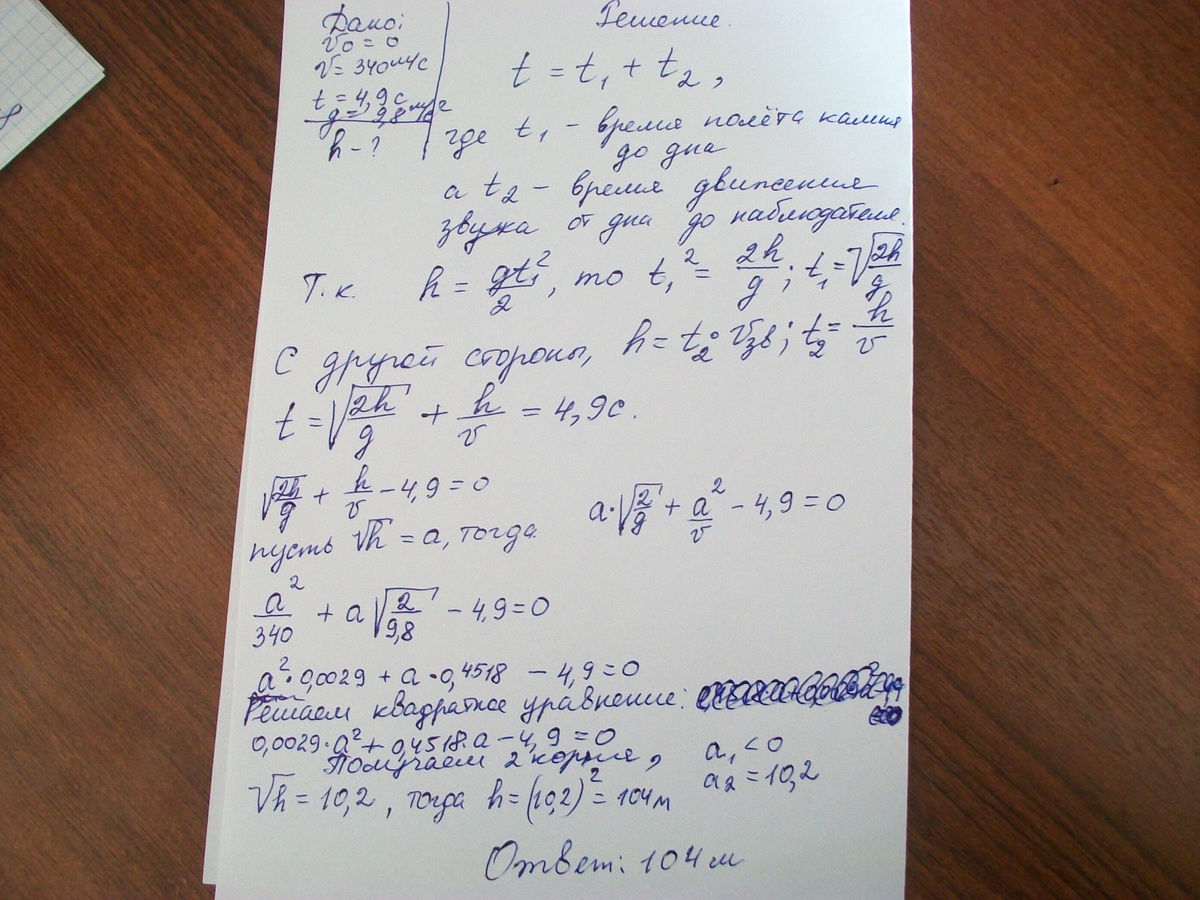 Дано:
v₀ = 0
v = 340 м/с
t = 4,9 с
g = 9,8 м/с²
h - ?
Решение.
t = t₁ + t₂ ,
где t₁ - время полёта камня
до дна
а t₂ - время движения
звука от дна до наблюдателя.
Т.к. h = gt₁²/2, то t₁² = 2h/g; t₁ = √(2h/g)
С другой стороны, h = t₂·vзв; t₂ = h/v
t = √(2h/g) + h/v = 4,9 с.
√(2h/g) + h/v - 4,9 = 0
пусть √h = a, тогда
a·√(2/g) + a²/v - 4,9 = 0
a²/340 + a√(2/9,8) - 4,9 = 0
a²·0,0029 + a·0,4518 - 4,9 = 0
Решаем квадратное уравнение:
0,0029·a² + 0,4518·a - 4,9 = 0
Получаем 2 корня, a₁ < 0
a₂ = 10,2
√h = 10,2, тогда h = (10,2)² = 104 м
Ответ: 104 м